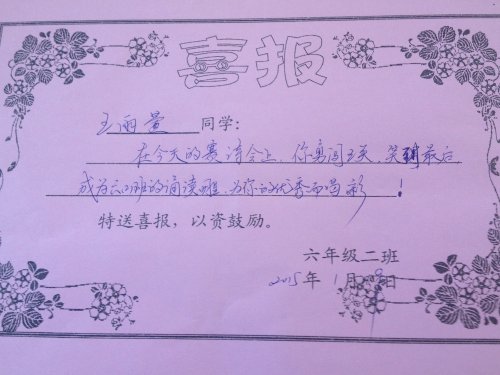 喜报
王雨萱 同学:
在今天的赛诗会上,你勇闯五关,笑到最后
成为六(2)班的诵读王,为你的优秀而喝彩!
特送喜报,以资鼓励。
六年级二班
2015年1月 日